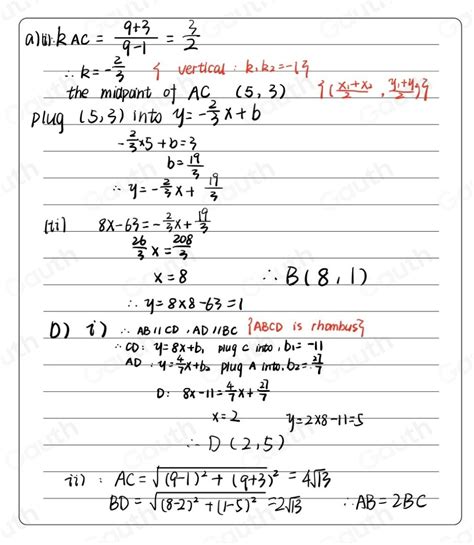 a)(i): k AC = (9+3)/(9-1) = 3/2
∴ k = -2/3 { vertical : k₁k₂=-1}
the midpoint of AC (5,3) {(x₁+x₂)/2, (y₁+y₂)/2}
plug (5,3) into y=-2/3x+b
-2/3×5+b=3
b=19/3
∴ y=-2/3x+19/3
(ii) 8x-63=-2/3x+19/3
26/3 x=208/3
x=8 ∴B(8,1)
∴ y=8×8-63=1
b) i) ∵ AB//CD, AD//BC {ABCD is rhombus}
∴ CD: y=8x+b, plug C into, b₁=-11
AD: y=4/7x+b₂ plug A into. b₂=27/7
D: 8x-11=4/7x+27/7
x=2 y=2×8-11=5
∴ D(2,5)
ii): AC=√((9-1)²+(9+3)²)=4√13
BD=√((8-2)²+(1-5)²)=2√13 ∴AB=2BC
Gauth